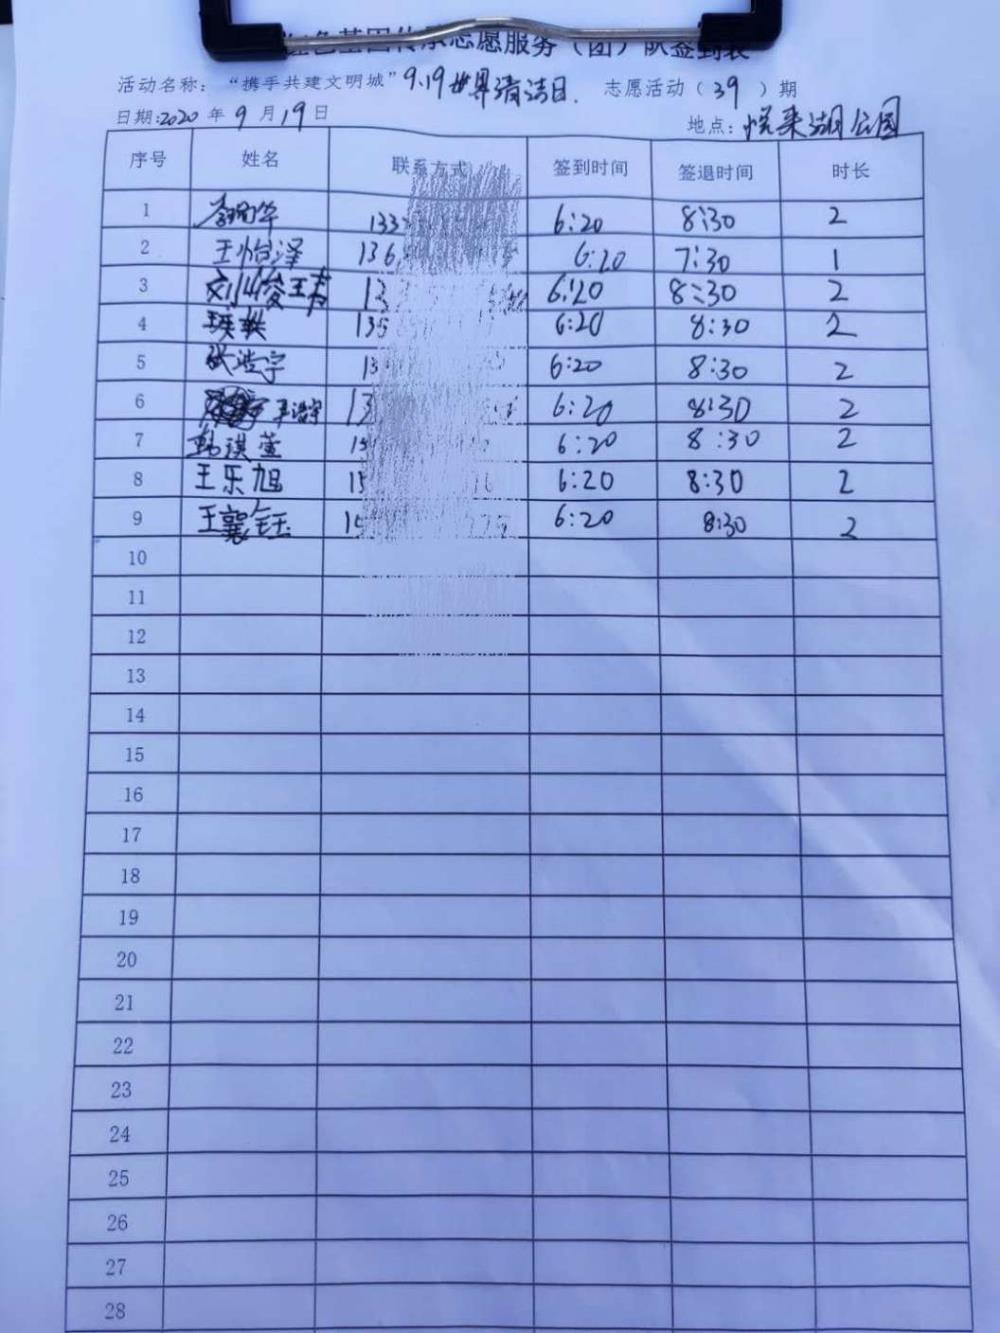 色基因传承志愿服务（团）队签到表
活动名称：“携手共建文明城”9.19世界清洁日. 志愿活动（39）期
日期:2020年9月19日 地点：悦来湖公园
序号 姓名 联系方式 签到时间 签退时间 时长
1 133 6:20 8:30 2
2 王怡泽 136 6:20 7:30 1
3 刘小俊 王 13 6:20 8:30 2
4 135 6:20 8:30 2
5 张浩宇 13 6:20 8:30 2
6 浩宇 13 6:20 8:30 2
7 韩淇萱 15 6:20 8:30 2
8 王乐旭 15 6:20 8:30 2
9 王襄钰 15 6:20 8:30 2
10
11
12
13
14
15
16
17
18
19
20
21
22
23
24
25
26
27
28